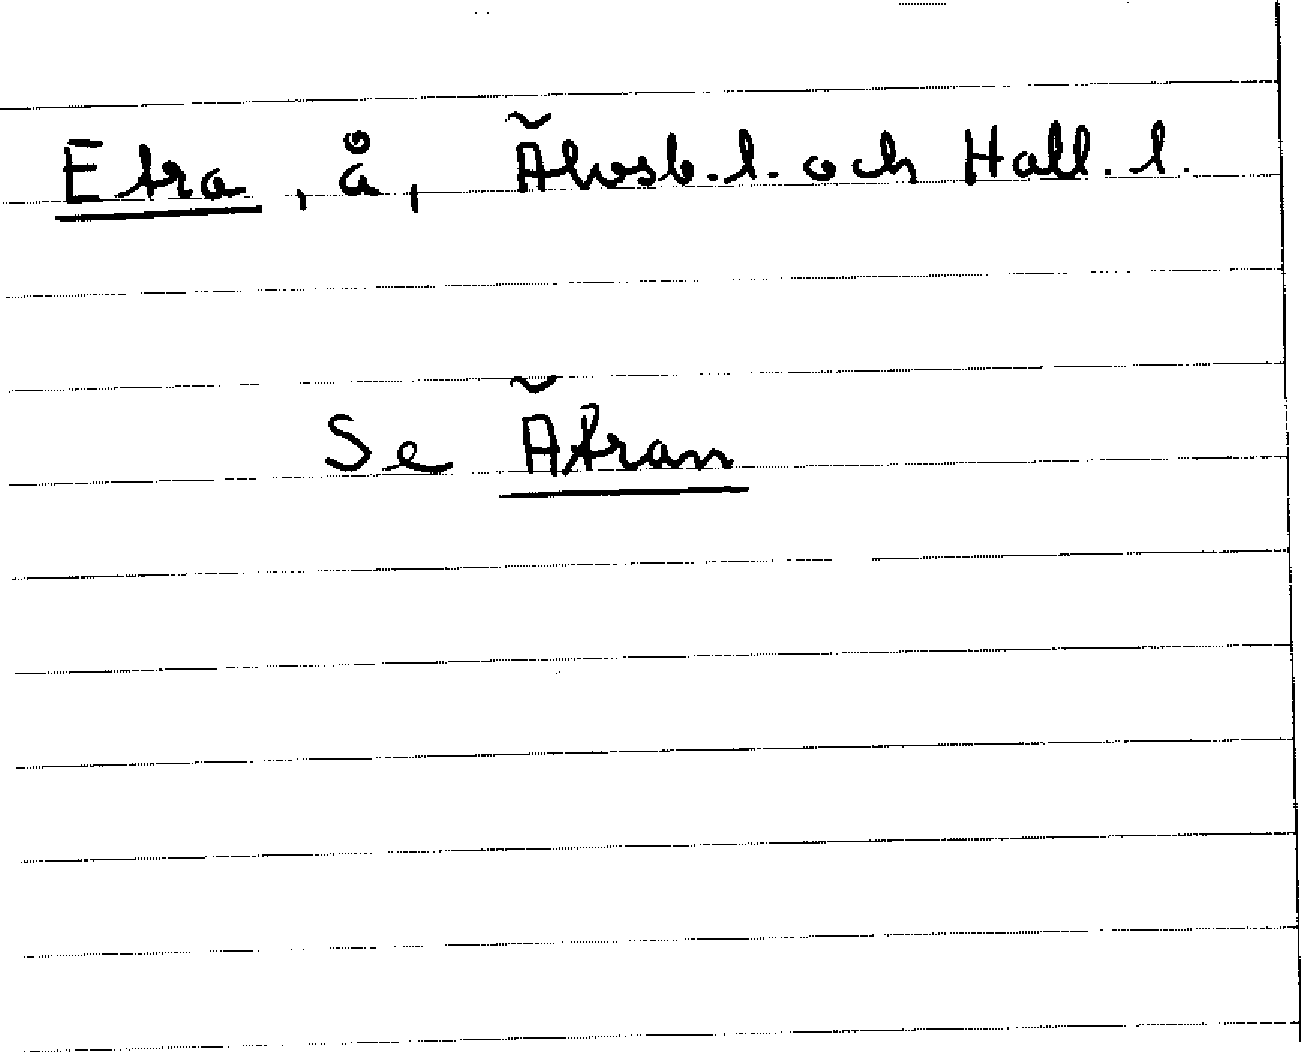 Etra, å, Älvsb. l. och Hall. l.
Se Ätran